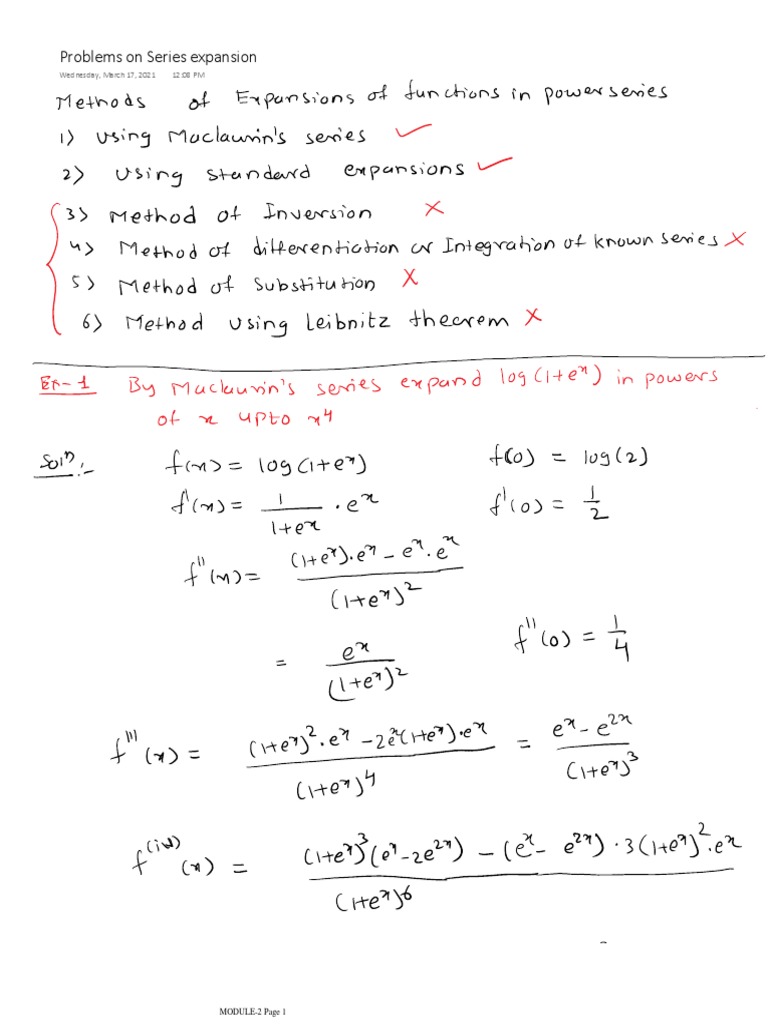 Problems on Series expansion
Wednesday, March 17, 2021 12:08 PM
Methods of Expansions of functions in power series
1) Using Maclaurin's series ✓
2) Using standard expansions ✓
3) Method of Inversion ✗
4) Method of differentiation or Integration of known series ✗
5) Method of Substitution ✗
6) Method using Leibnitz theorem ✗
Ex-1 By Maclaurin's series expand log(1+eˣ) in powers
of x upto x⁴
Solⁿ:- f(x) = log(1+eˣ) f(0) = log(2)
f'(x) = 1/(1+eˣ) · eˣ f'(0) = 1/2
f''(x) = ((1+eˣ)·eˣ − eˣ·eˣ)/(1+eˣ)²
= eˣ/(1+eˣ)² f''(0) = 1/4
f'''(x) = ((1+eˣ)²·eˣ − 2eˣ(1+eˣ)·eˣ)/(1+eˣ)⁴ = (eˣ − e²ˣ)/(1+eˣ)³
f⁽ⁱᵛ⁾(x) = ((1+eˣ)³(eˣ − 2e²ˣ) − (eˣ − e²ˣ)·3(1+eˣ)²·eˣ)/(1+eˣ)⁶
MODULE-2 Page 1